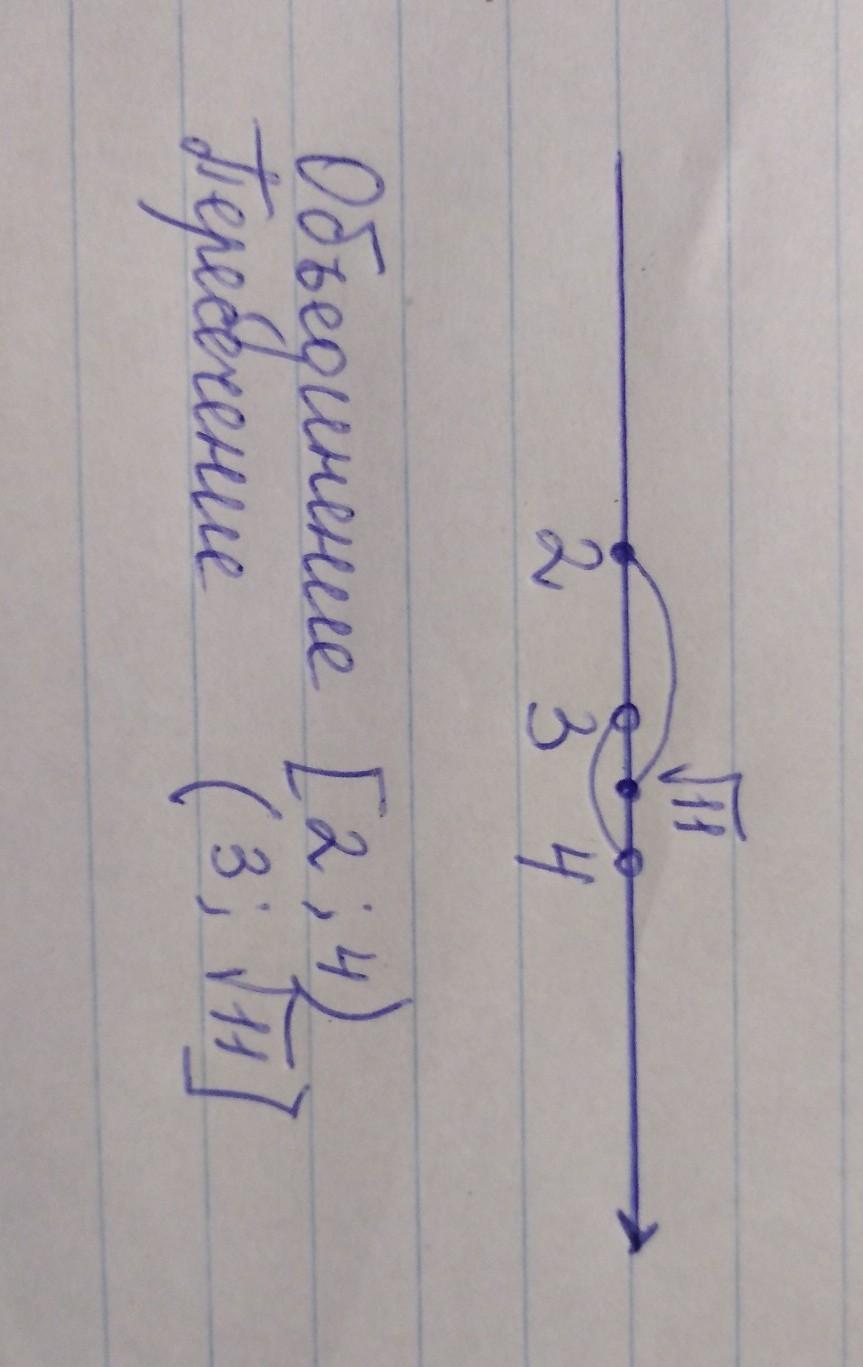 √11
2 3 4
Объединение [2; 4)
Пересечение (3; √11]